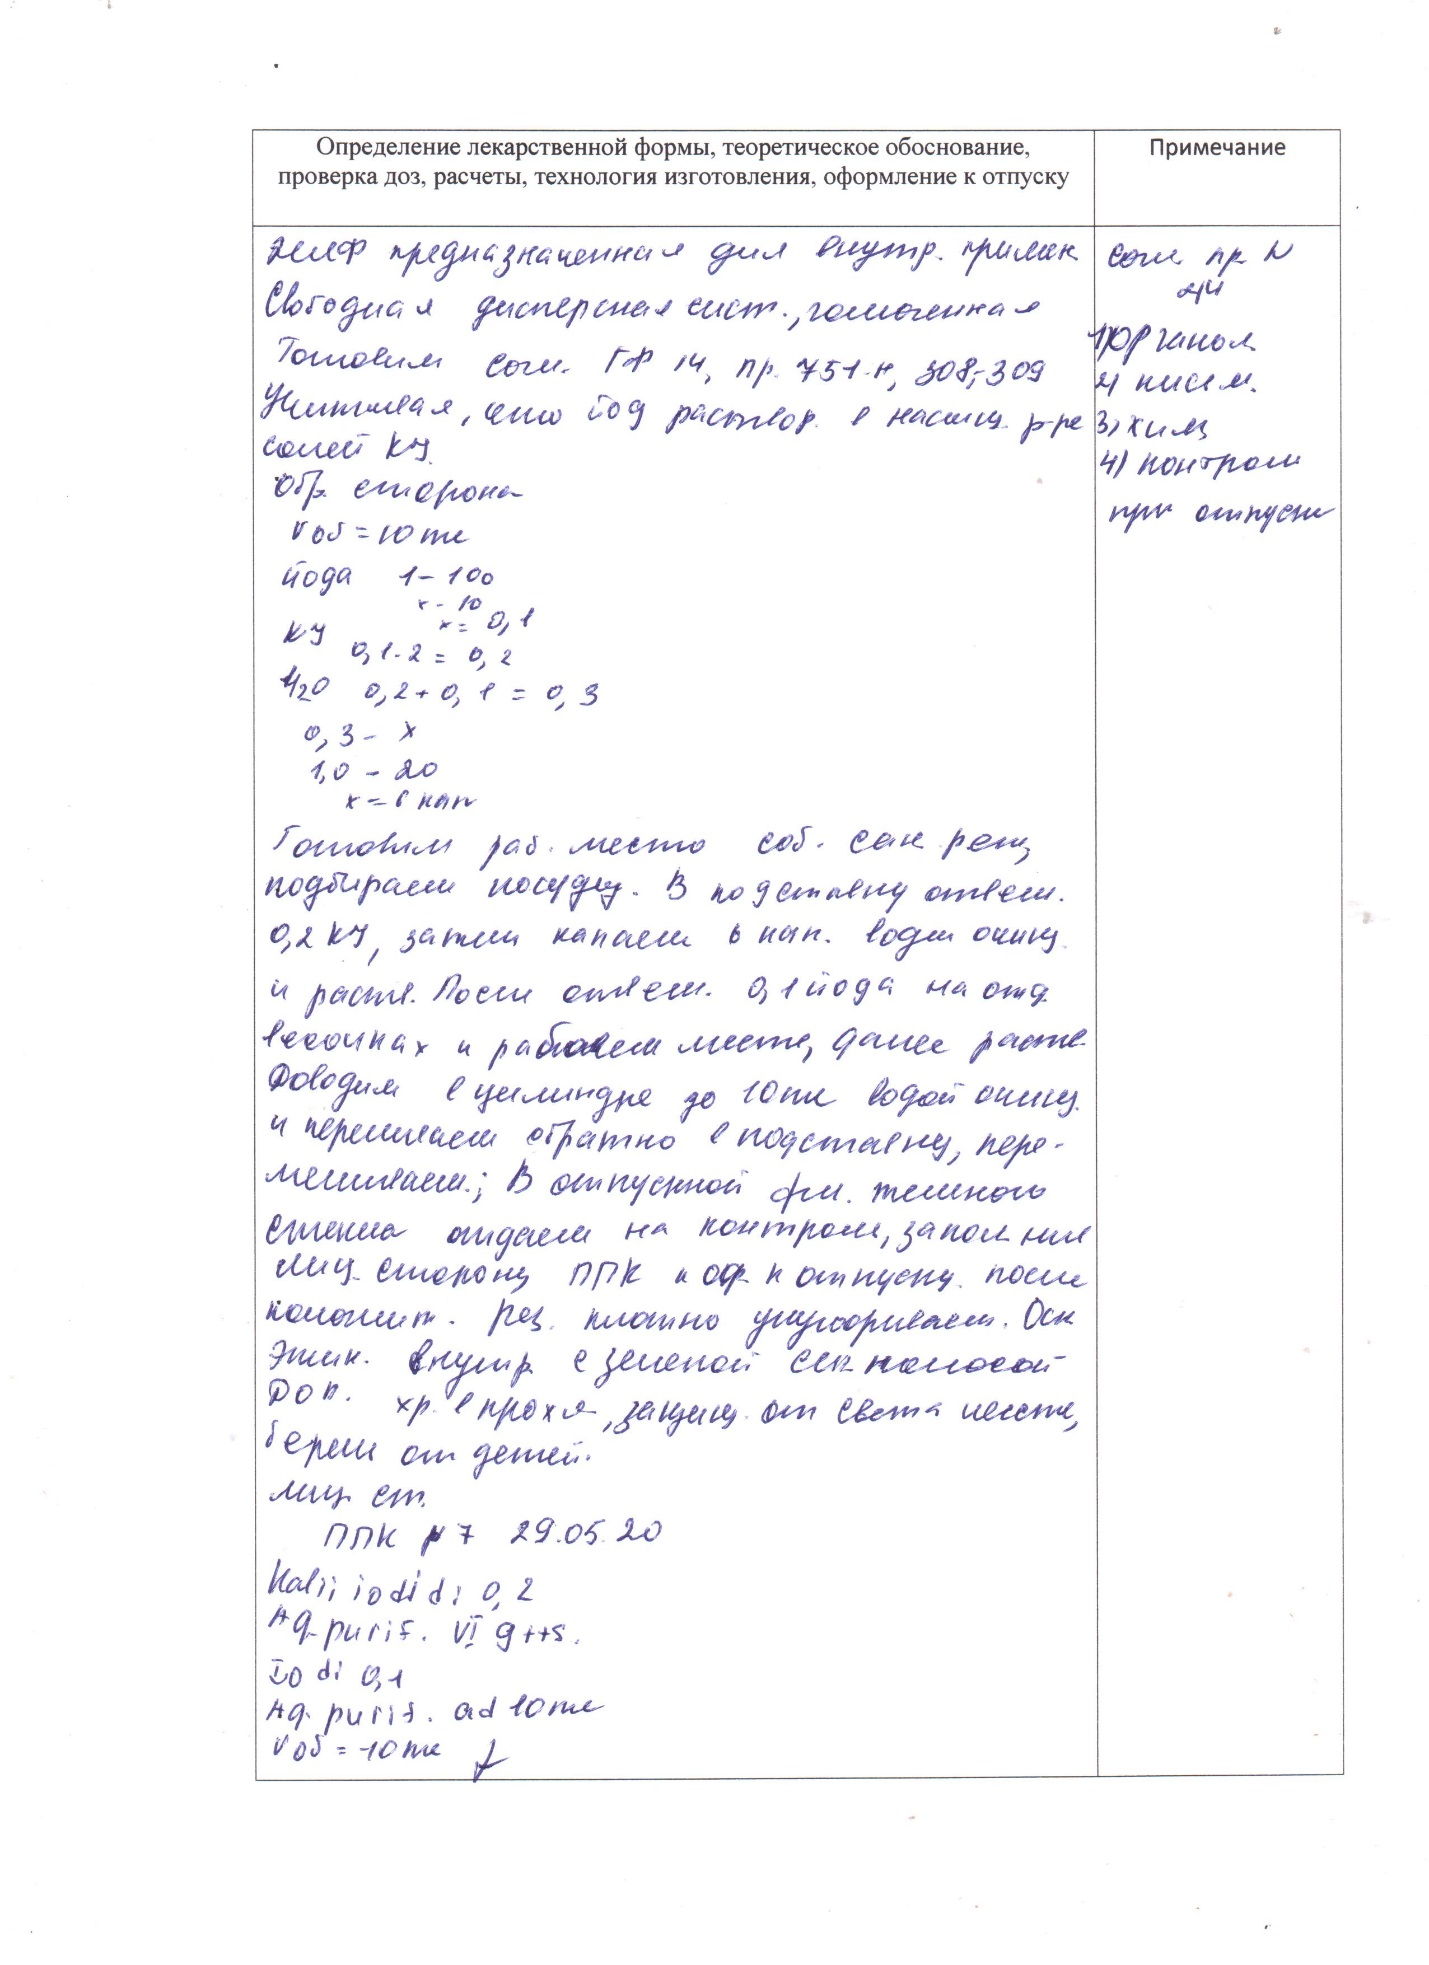 Определение лекарственной формы, теоретическое обоснование,
проверка доз, расчеты, технология изготовления, оформление к отпуску
Примечание
ЖЛФ предназначенная для внутр. примен
Свободная дисперсная сист., гомогенная
Готовим согл. ГФ 14, пр. 751 н, 308, 309
Учитывая, что йод раствор. в насыщ. р-ре
солей KY.
Обр. сторона
Vоб = 10 мл
йода 1 - 100
x - 10
x = 0,1
KY
0,1 . 2 = 0,2
H2O 0,2 + 0,1 = 0,3
0,3 - x
1,0 - 20
x = 6 кап
Готовим раб. место соб. сан. реж,
подбираем посуду. В подставку отвеш.
0,2 KY, затем капаем 6 кап. воды очищ.
и раств. После отвеш. 0,1 йода на отд.
весочках и рабочем месте, далее раств.
Доводим в цилиндре до 10 мл водой очищ.
и переливаем обратно в подставку, пере-
мешиваем.; В отпускной фл. темного
стекла отдаем на контроль, заполнив
лиц. сторону ППК и оф. к отпуску. после
положит. рез. плотно укупориваем. Осн
этик. внутр с зеленой сиг полосой
Доп. хр. в прохл, защищ. от света месте,
береги от детей.
лиц. ст.
ППК № 7 29.05.20
Kalii iodidi 0,2
Aq. purif. VI gtts.
Iodi 0,1
Aq. purif. ad 10 мл
Vоб = 10 мл
согл. пр. N
1) Органол
2) письм.
3) хим
4) контроль
при отпуске